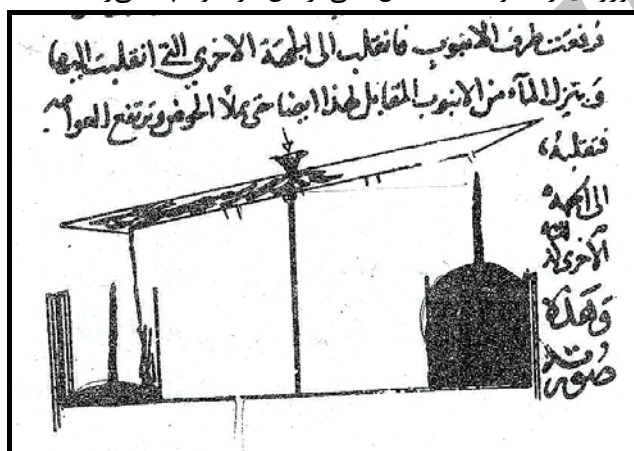 فرفعت طرف الانبوب فانقلب الى الجهة الاخرى التي انقلبت اليها
وينزل المآء من الانبوب المقابل لهذا ايضا حتى يملأ الحوض وترتفع العوامه
فتقلبه
الى الجهه
الأخرى
وهذه
صورته